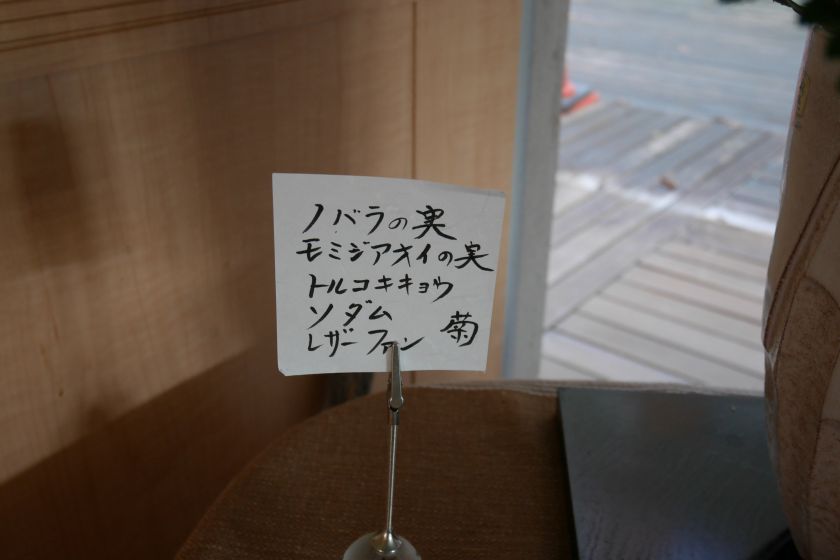 ノバラの実
モミジアオイの実
トルコキキョウ
ソダム
レザーファン 菊